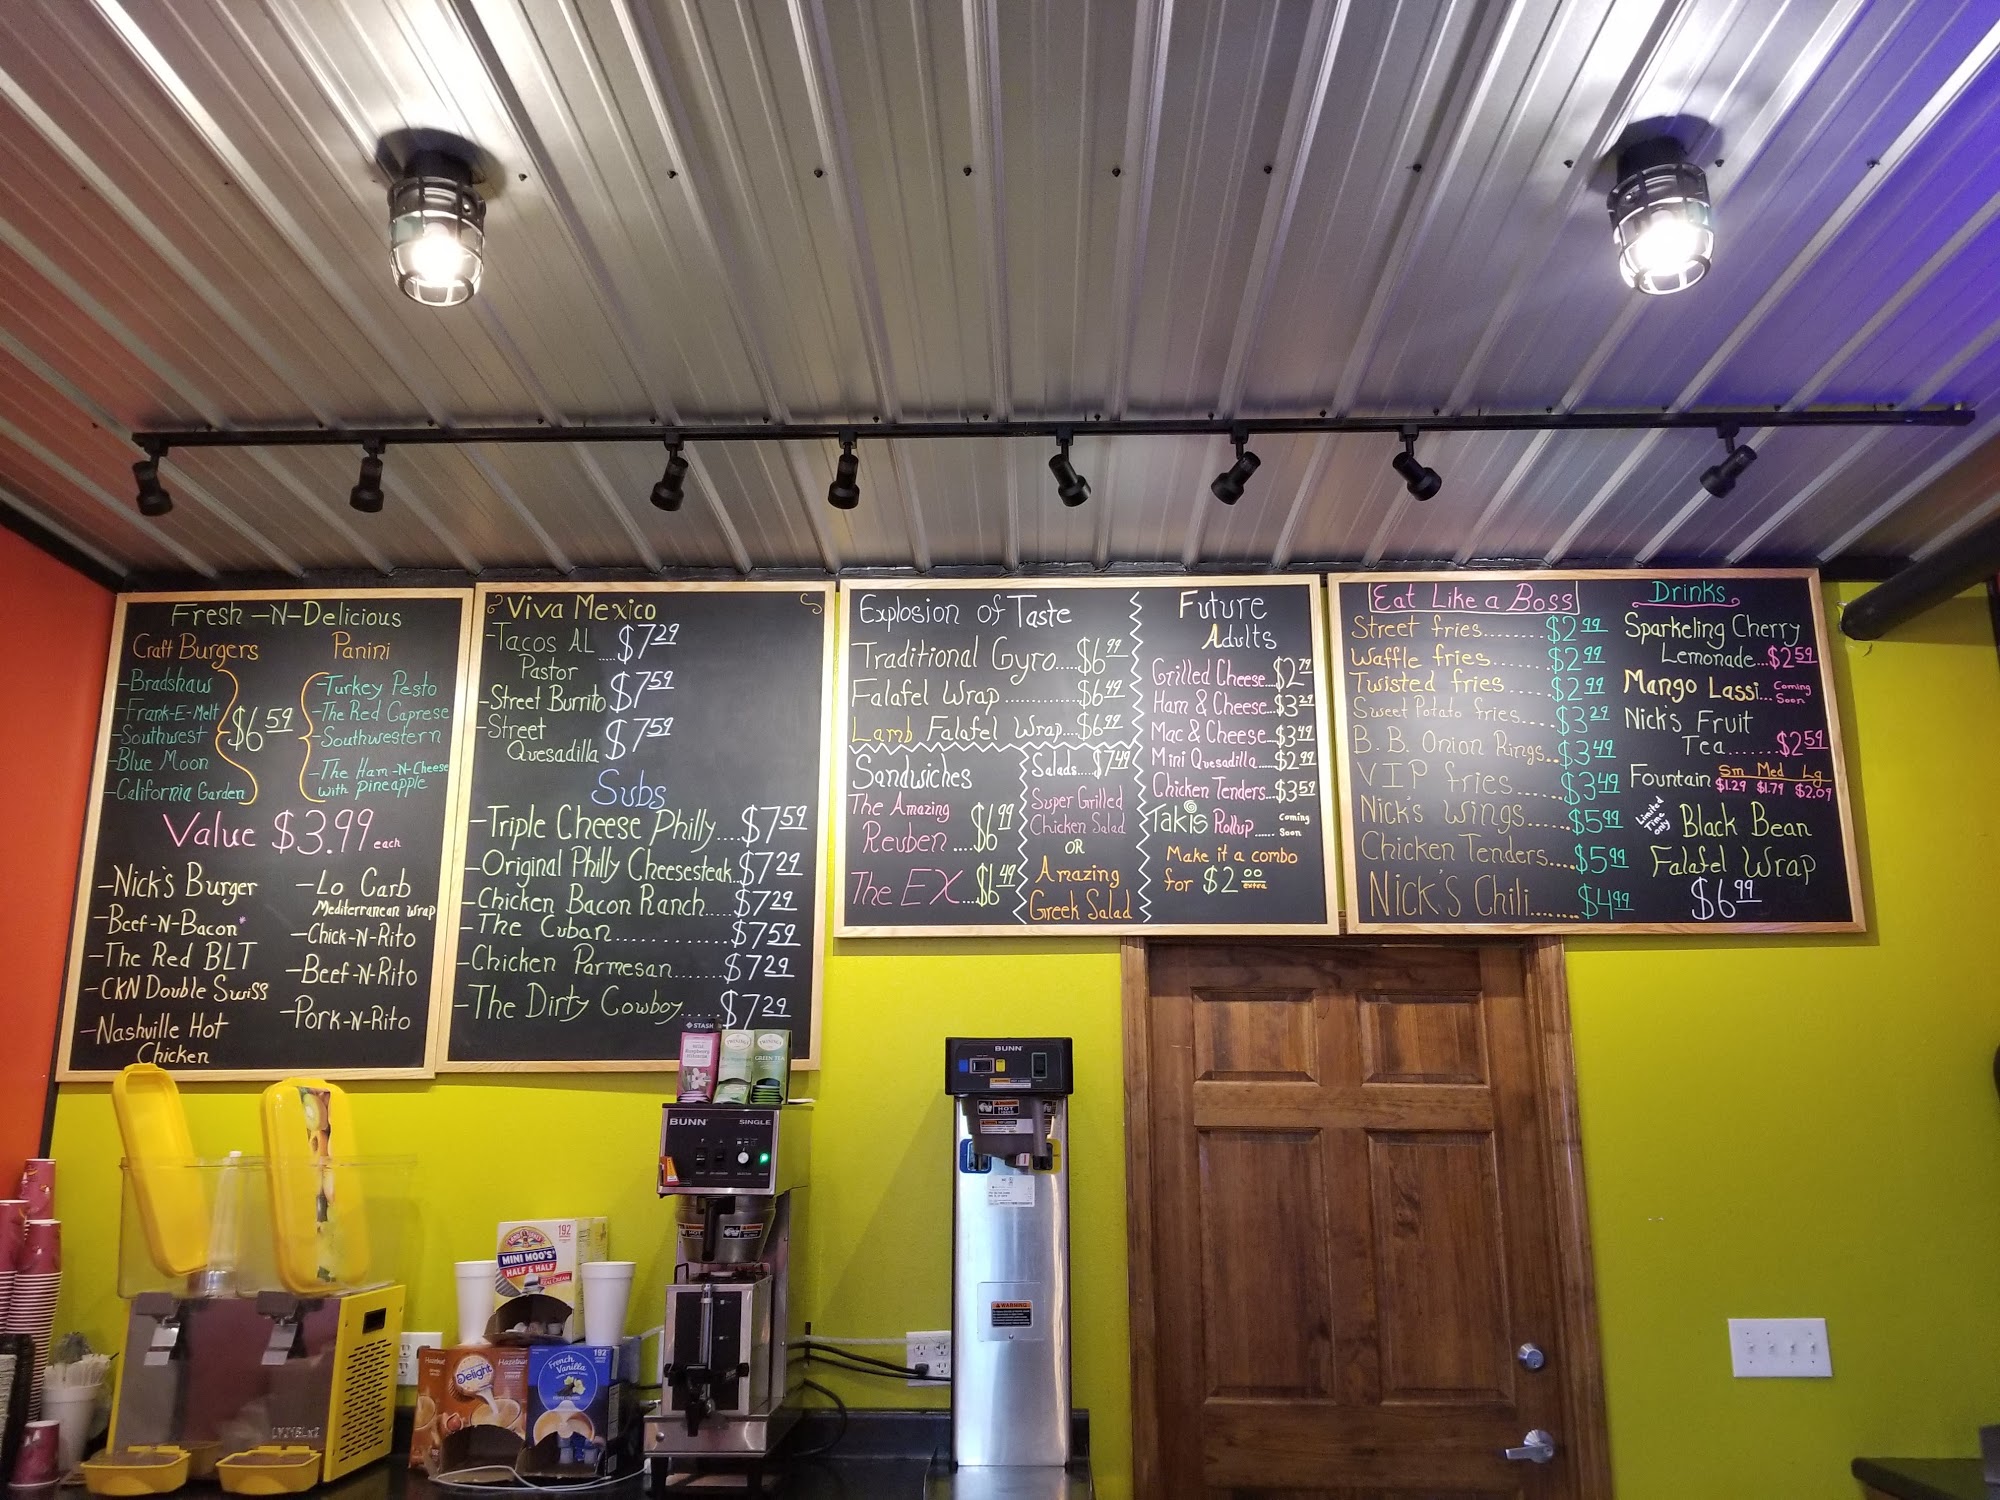 Fresh-N-Delicious
Craft Burgers
-Bradshaw
-Frank-E-Melt
-Southwest
-Blue Moon
-California Garden
$6.59
Panini
-Turkey Pesto
-The Red Caprese
-Southwestern
-The Ham-N-Cheese
with pineapple
Value $3.99 each
-Nick's Burger
-Beef-N-Bacon*
-The Red BLT
-CKN Double Swiss
-Nashville Hot
Chicken
-Lo Carb
Mediterranean wrap
-Chick-N-Rito
-Beef-N-Rito
-Pork-N-Rito
Viva Mexico
-Tacos AL
Pastor ....$7.29
-Street Burrito $7.59
-Street
Quesadilla $7.59
Subs
-Triple Cheese Philly....$7.59
-Original Philly Cheesesteak..$7.29
-Chicken Bacon Ranch.....$7.29
-The Cuban............$7.59
-Chicken Parmesan.......$7.29
-The Dirty Cowboy....$7.29
Explosion of Taste
Traditional Gyro.....$6.99
Falafel Wrap...........$6.49
Lamb Falafel Wrap....$6.99
Sandwiches
The Amazing
Reuben....$6.99
The EX...$6.49
Salads....$7.49
Super Grilled
Chicken Salad
OR
Amazing
Greek Salad
Future
Adults
Grilled Cheese...$2.79
Ham & Cheese...$3.29
Mac & Cheese...$3.49
Mini Quesadilla....$2.99
Chicken Tenders...$3.59
Takis Rollup...... Coming
Soon
Make it a combo
for $2.00 extra
Eat Like a Boss
Street fries........$2.99
Waffle fries.......$2.99
Twisted fries......$2.99
Sweet Potato fries....$3.29
B.B. Onion Rings..$3.49
VIP fries........$3.49
Nick's Wings.....$5.99
Chicken Tenders....$5.99
Nick's Chili.......$4.99
Drinks
Sparkeling Cherry
Lemonade...$2.59
Mango Lassi... Coming
Soon
Nick's Fruit
Tea.......$2.59
Fountain Sm Med Lg
$1.29 $1.79 $2.09
Limited
Time
only
Black Bean
Falafel Wrap
$6.99
STASH
TWININGS
TWININGS
GREEN TEA
BUNN
SINGLE
BUNN
HOT
WARNING
192
MINI MOO'S
HALF & HALF
Delight
Hazelnut
French
Vanilla
192